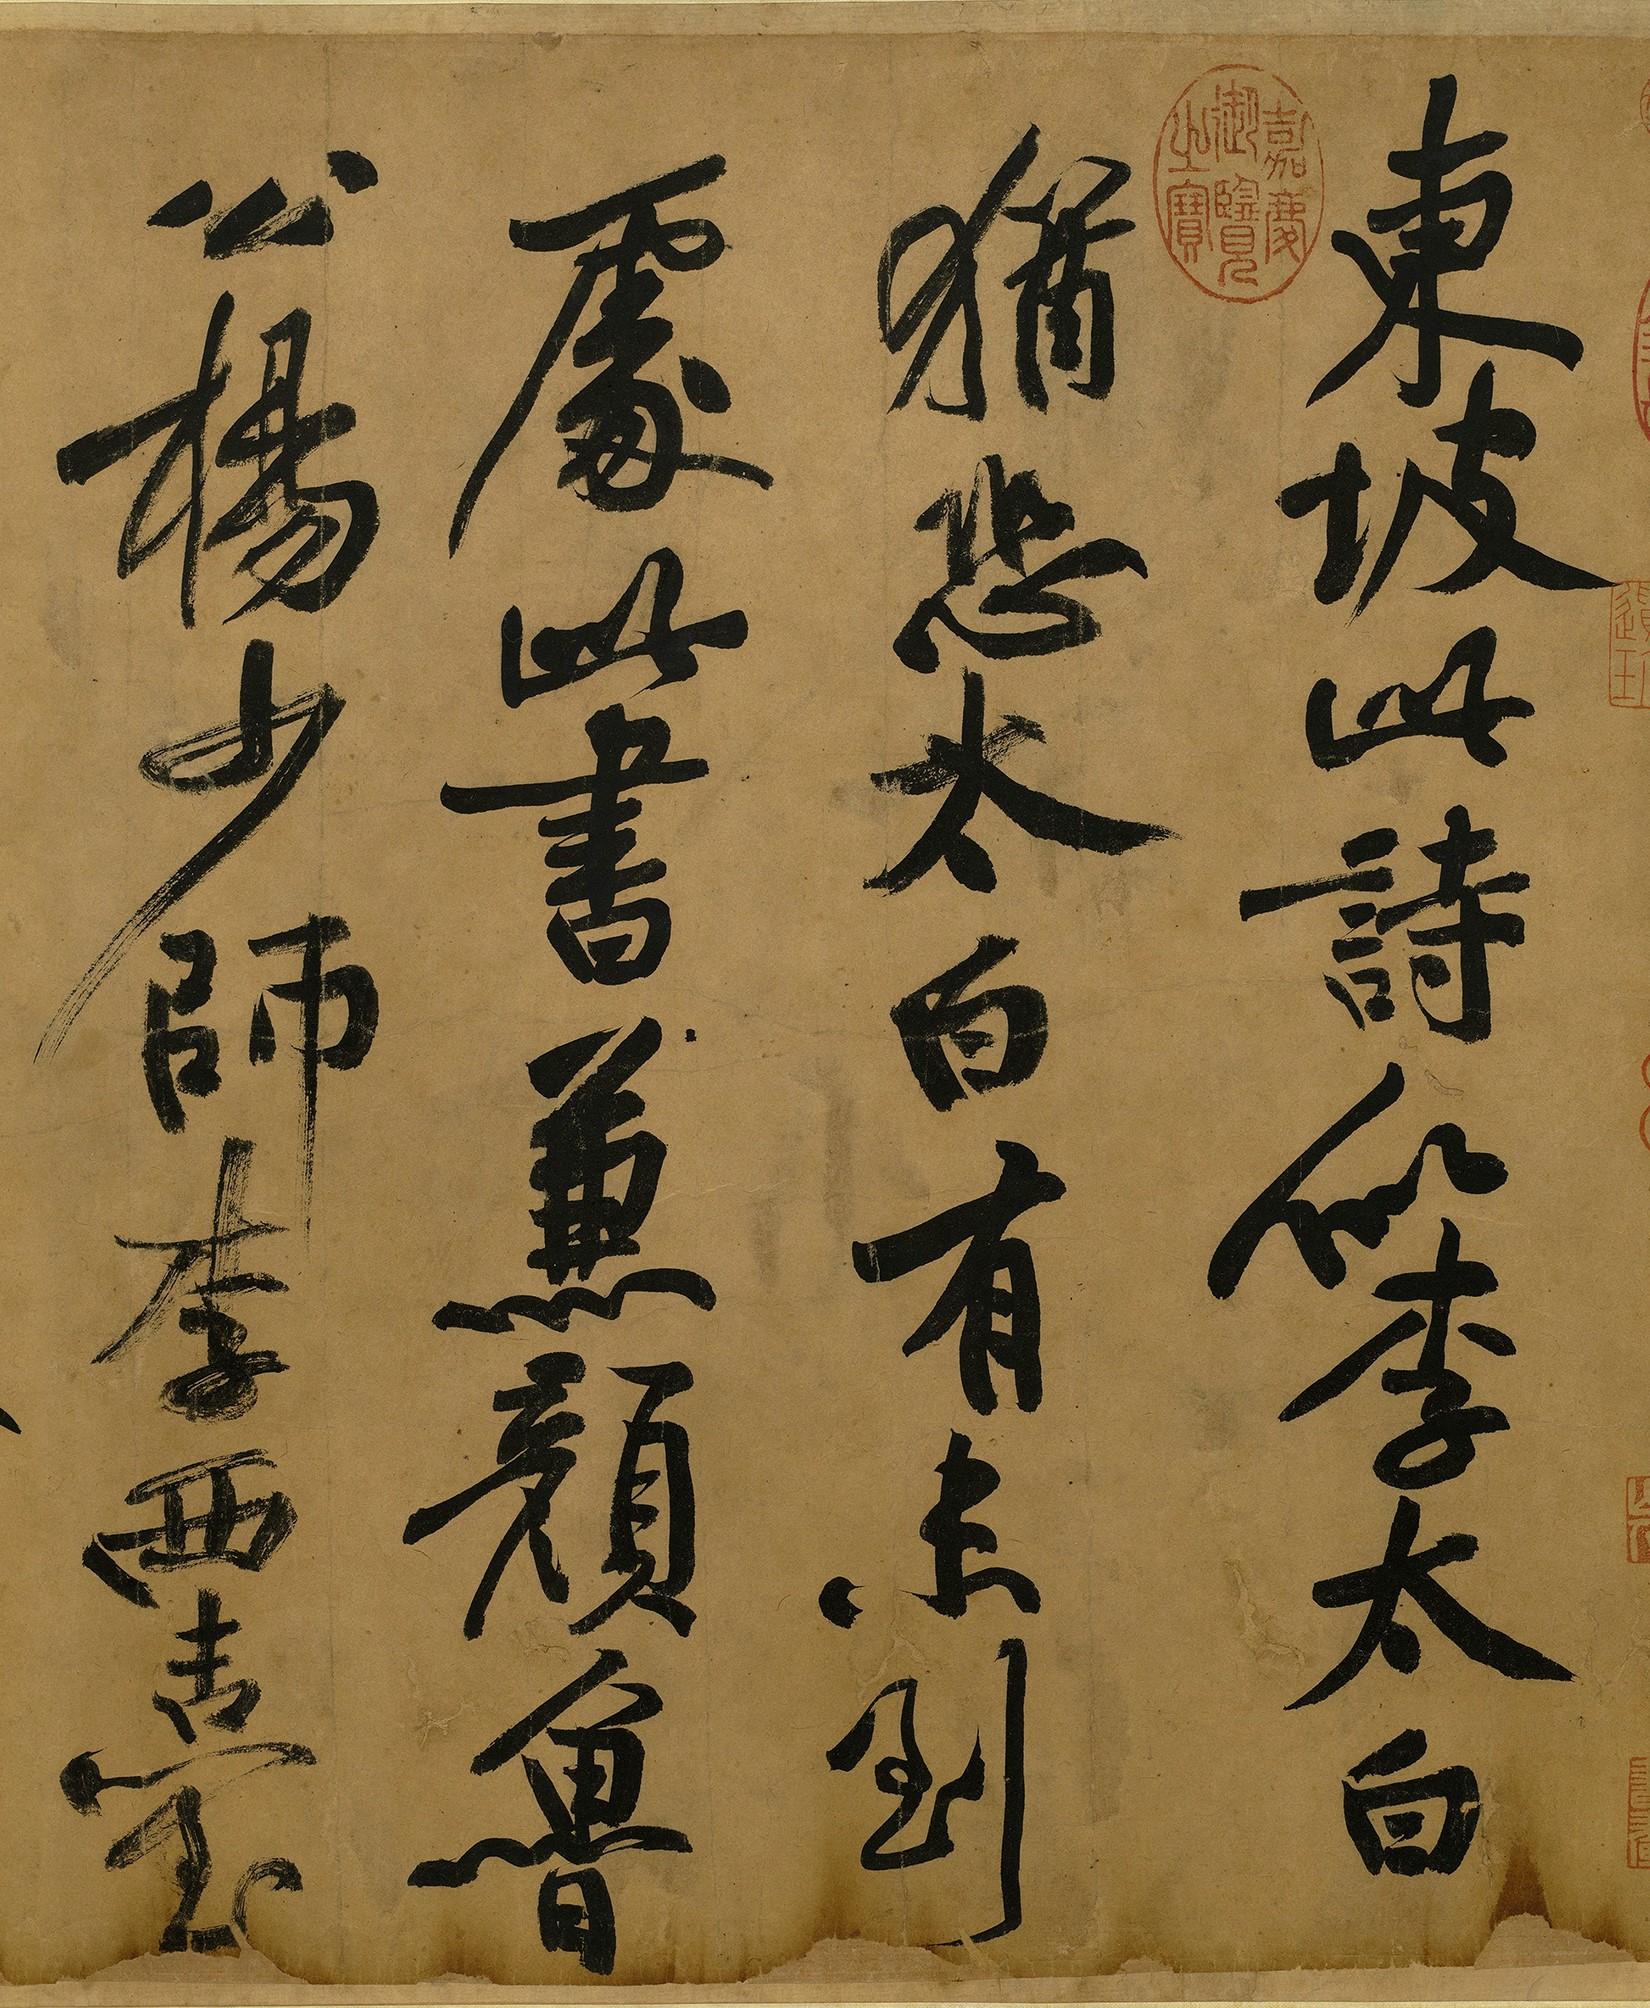 東坡此詩似李太白
猶恐太白有未到
處此書兼顏魯
公楊少師李西臺
嘉慶御覽之寶